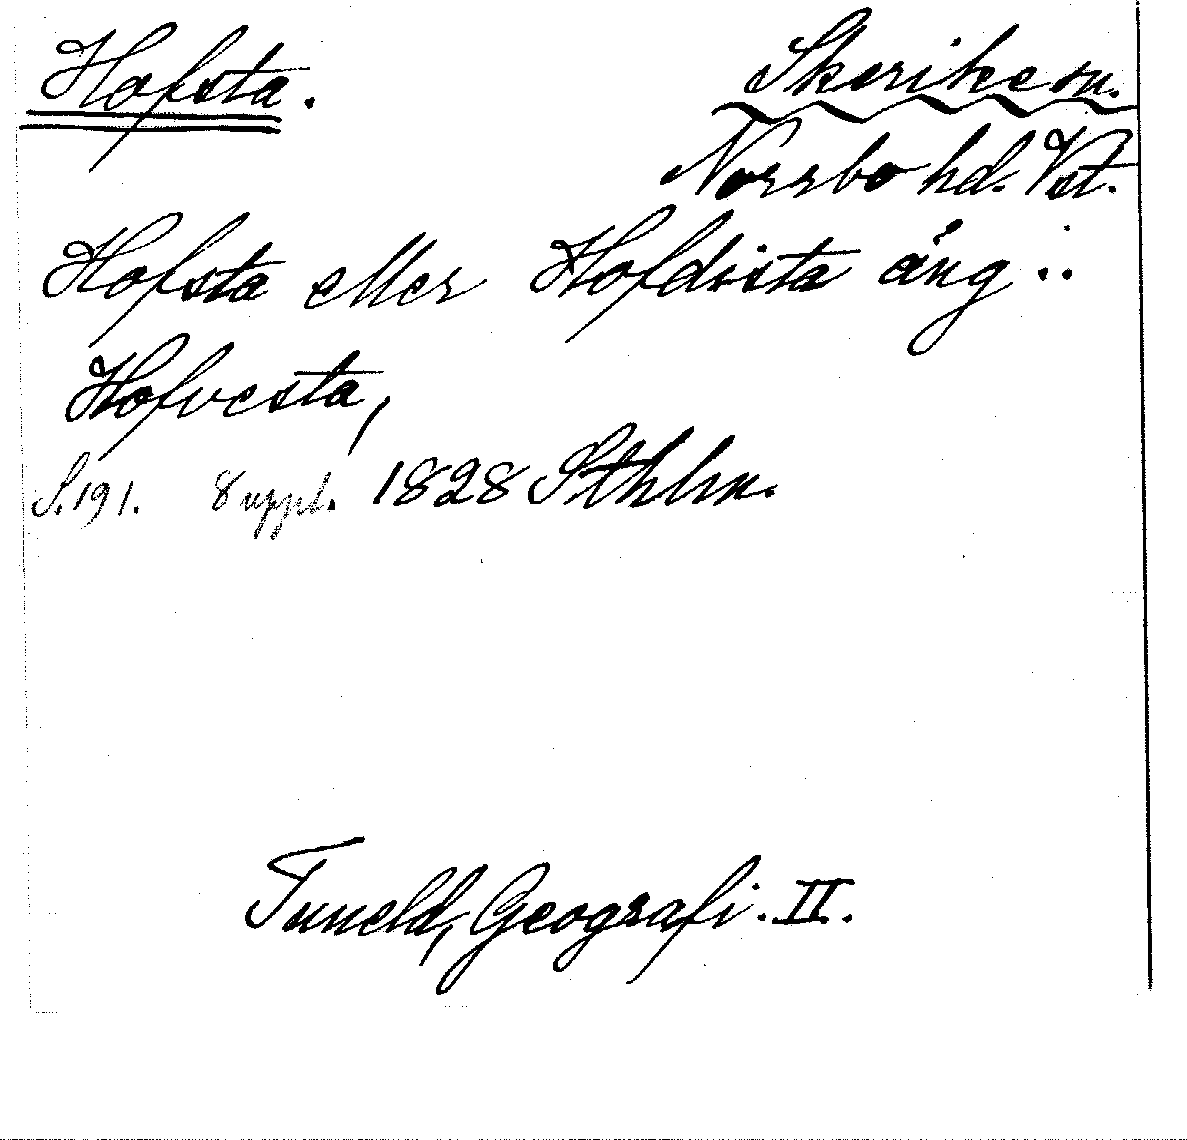 Hofsta.
Skerike sn.
Norrbo hd. Vst.
Hofsta eller Hofdista äng..
Hofvesta,
S. 191. 8 uppl. 1828 Sthlm.
Tuneld, Geografi. II.